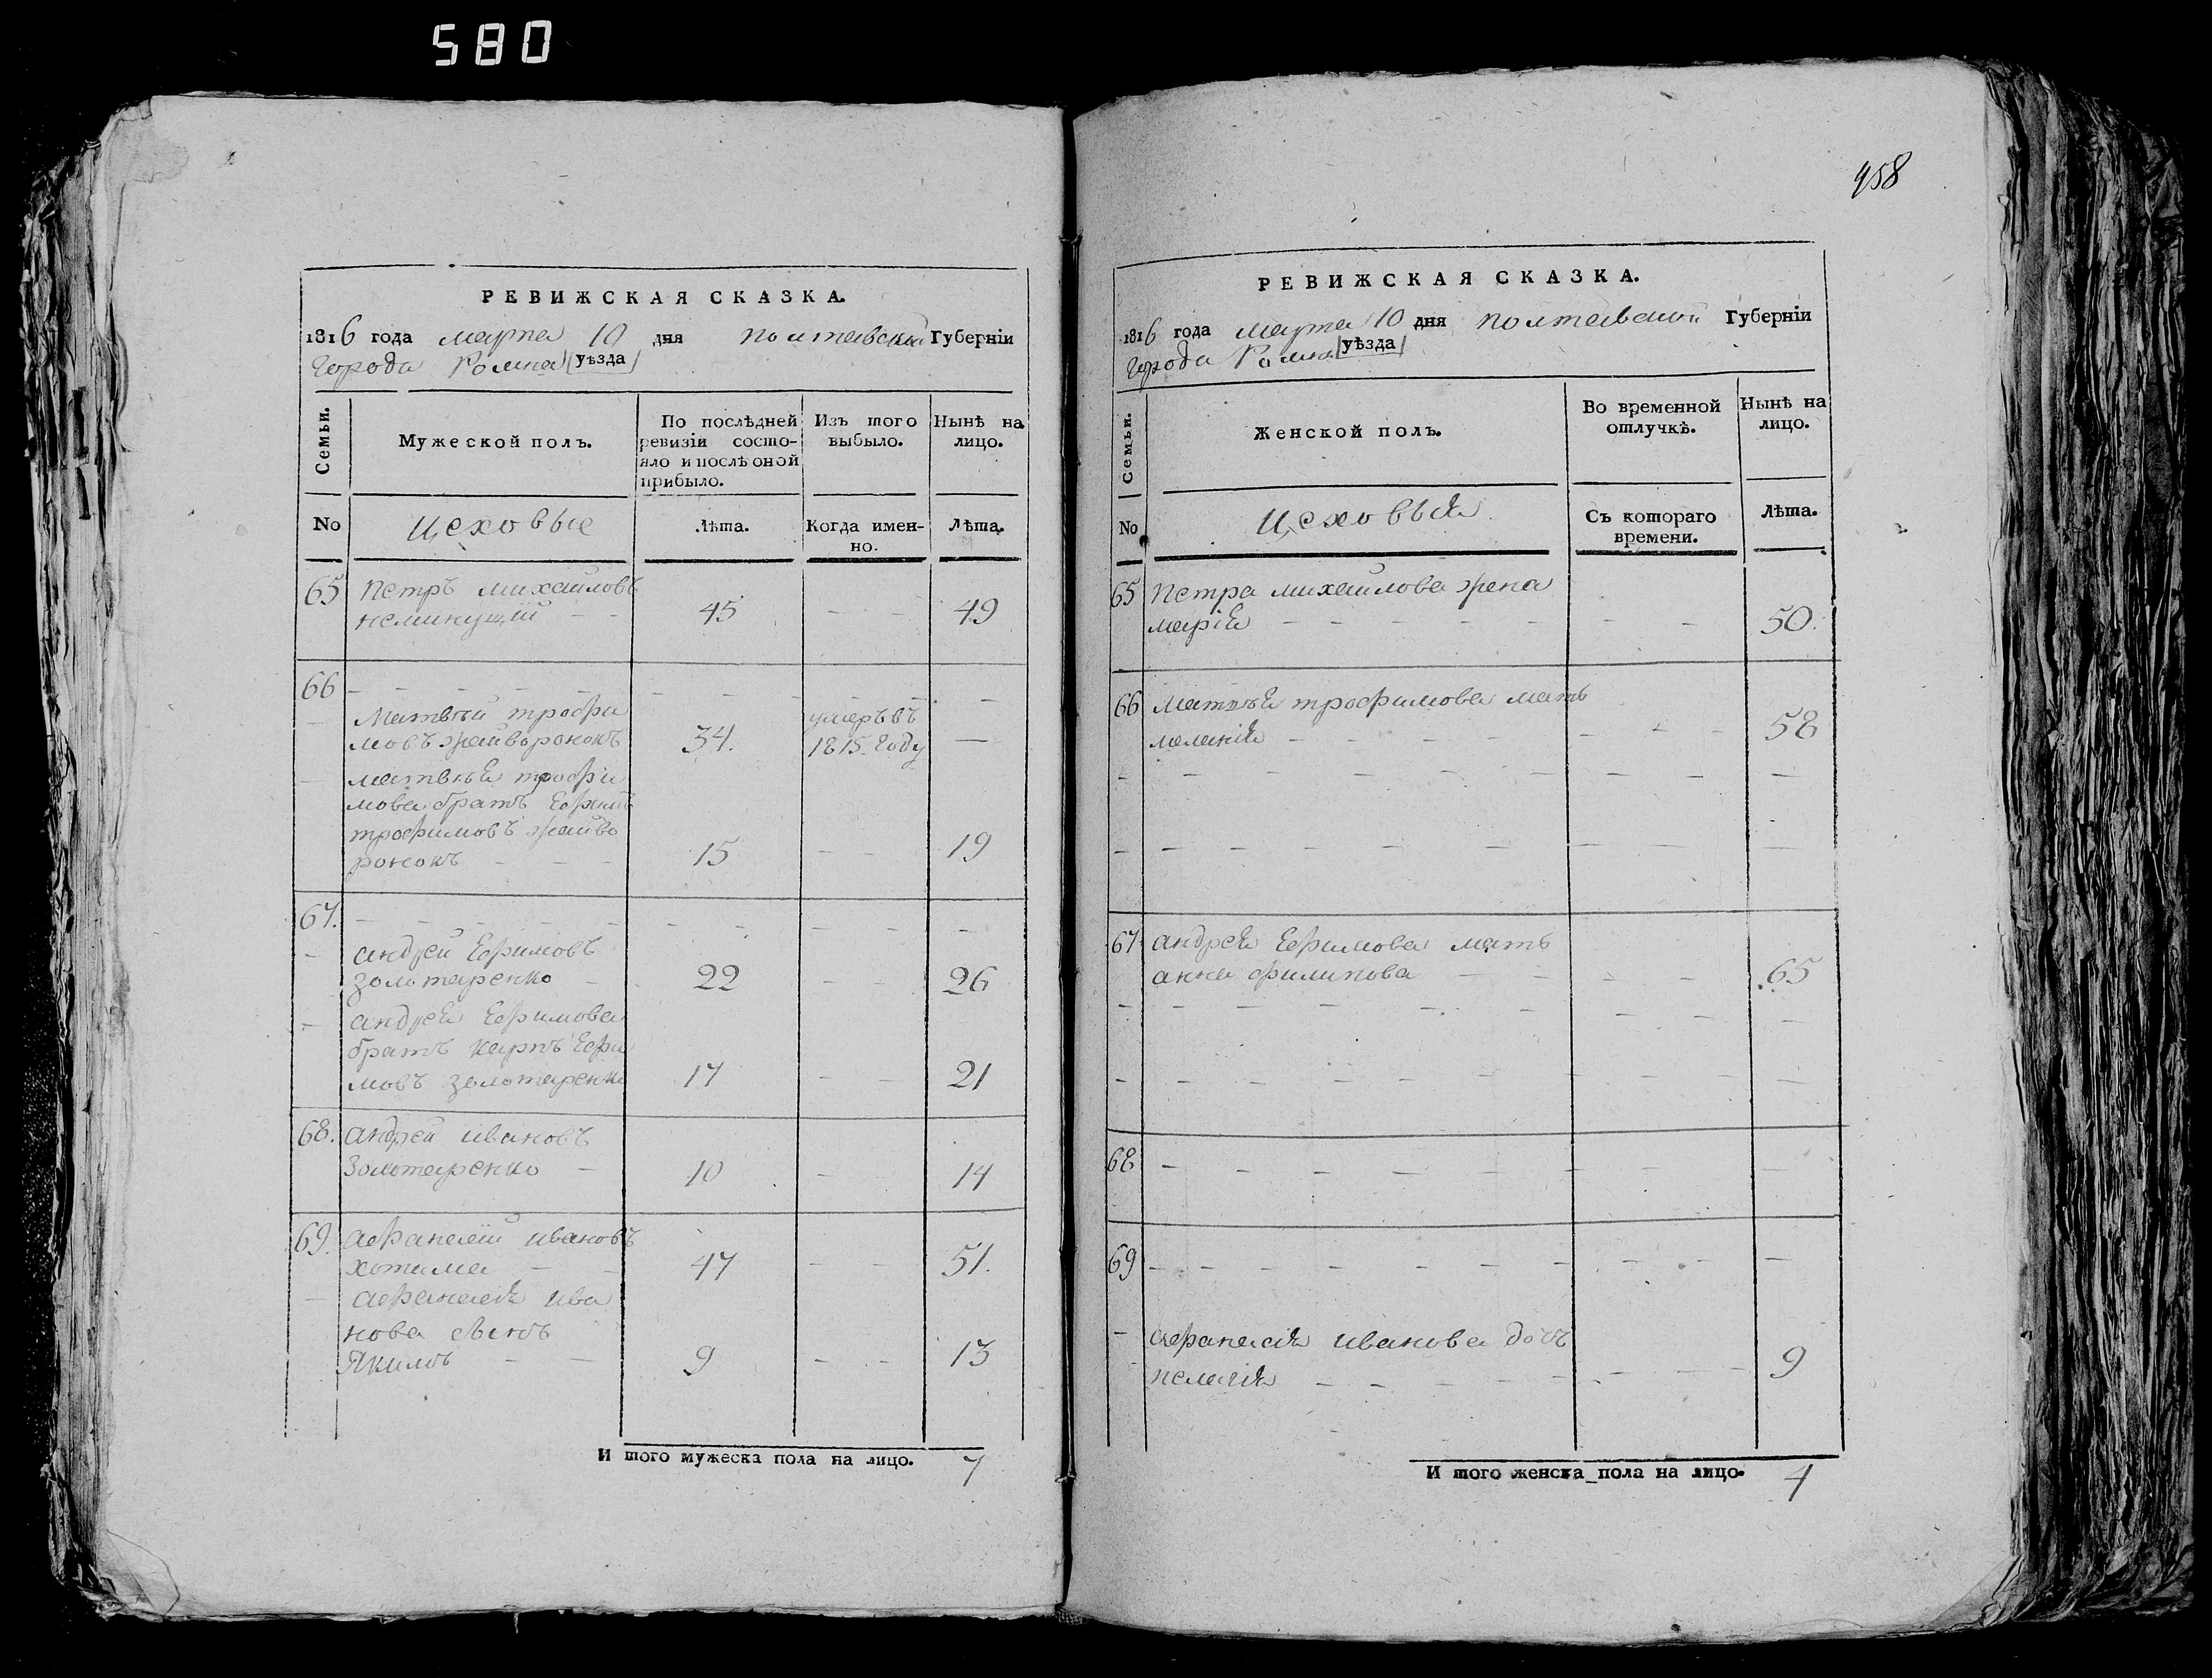 580
458
РЕВИЖСКАЯ СКАЗКА.
1816 года марта 10 дня полтавской Губерніи
Города Ромна уѣзда
Семьи.
Мужеской полъ.
По послѣдней ревизіи состо-
яло и послѣ оной
прибыло.
Изъ того
выбыло.
Нынѣ на
лицо.
No
Цеховые
Лѣта.
Когда имен-
но.
Лѣта.
65 Петръ михайловъ
неминущій - - 45 - - 49
66 - - - - -
Матвѣй трофи
мовъ жайворонокъ 34. умеръ въ
1815 году —
матвѣя трофи
мова братъ Ефимъ
трофимовъ жайво
ронокъ - - - 15 - - 19
67. - - - - -
андрей Ефимовъ
золотаренко - 22 - - 26
андрея Ефимова
братъ карпъ Ефи
мовъ золотаренко 17 - - 21
68. андрей ивановъ
Золотаренко - 10 - 14
69. афанасій ивановъ
хотима - - 47 - - 51.
афанасія ива
нова сынъ
Якимъ - - 9 - - 13
И того мужеска пола на лицо. 7
РЕВИЖСКАЯ СКАЗКА.
1816 года марта 10 дня полтавской Губерніи
Города Ромна уѣзда
Семьи.
Женской полъ.
Во временной
отлучкѣ.
Нынѣ на
лицо.
No
Цеховыя
Съ котораго
времени.
Лѣта.
65 Петра михайлова жена
марія - - - - - 50.
66 Матвѣя трофимова мать
меланія - - - - - 58
67 андрея Ефимова мать
анна филипова - - - 65
68 - - - - -
69 - - - - -
афанасія иванова дочь
пелагія - - - - - 9
И того женска пола на лицо. 4